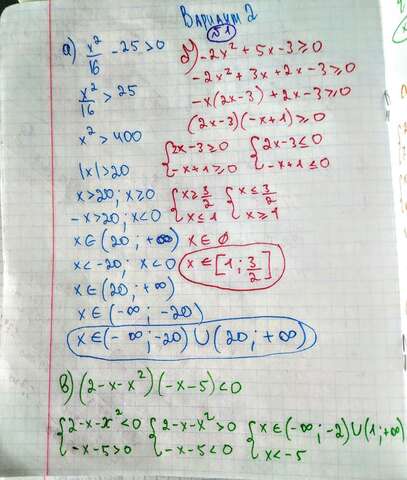 Вариант 2
№1
а) x²/16 - 25 > 0
x²/16 > 25
x² > 400
|x| > 20
x > 20; x ≥ 0
-x > 20; x < 0
x ∈ (20; +∞)
x < -20; x < 0
x ∈ (20; +∞)
x ∈ (-∞; -20)
x ∈ (-∞; -20) ∪ (20; +∞)
б) -2x² + 5x - 3 ≥ 0
-2x² + 3x + 2x - 3 ≥ 0
-x(2x-3) + 2x - 3 ≥ 0
(2x-3)(-x+1) ≥ 0
{2x-3 ≥ 0 {2x-3 ≤ 0
{-x+1 ≥ 0 {-x+1 ≤ 0
{x ≥ 3/2 {x ≤ 3/2
{x ≤ 1 {x ≥ 1
x ∈ ∅
x ∈ [1; 3/2]
в) (2-x-x²)(-x-5) < 0
{2-x-x² < 0 {2-x-x² > 0 {x ∈ (-∞; -2) ∪ (1; +∞)
{-x-5 > 0 {-x-5 < 0 {x < -5